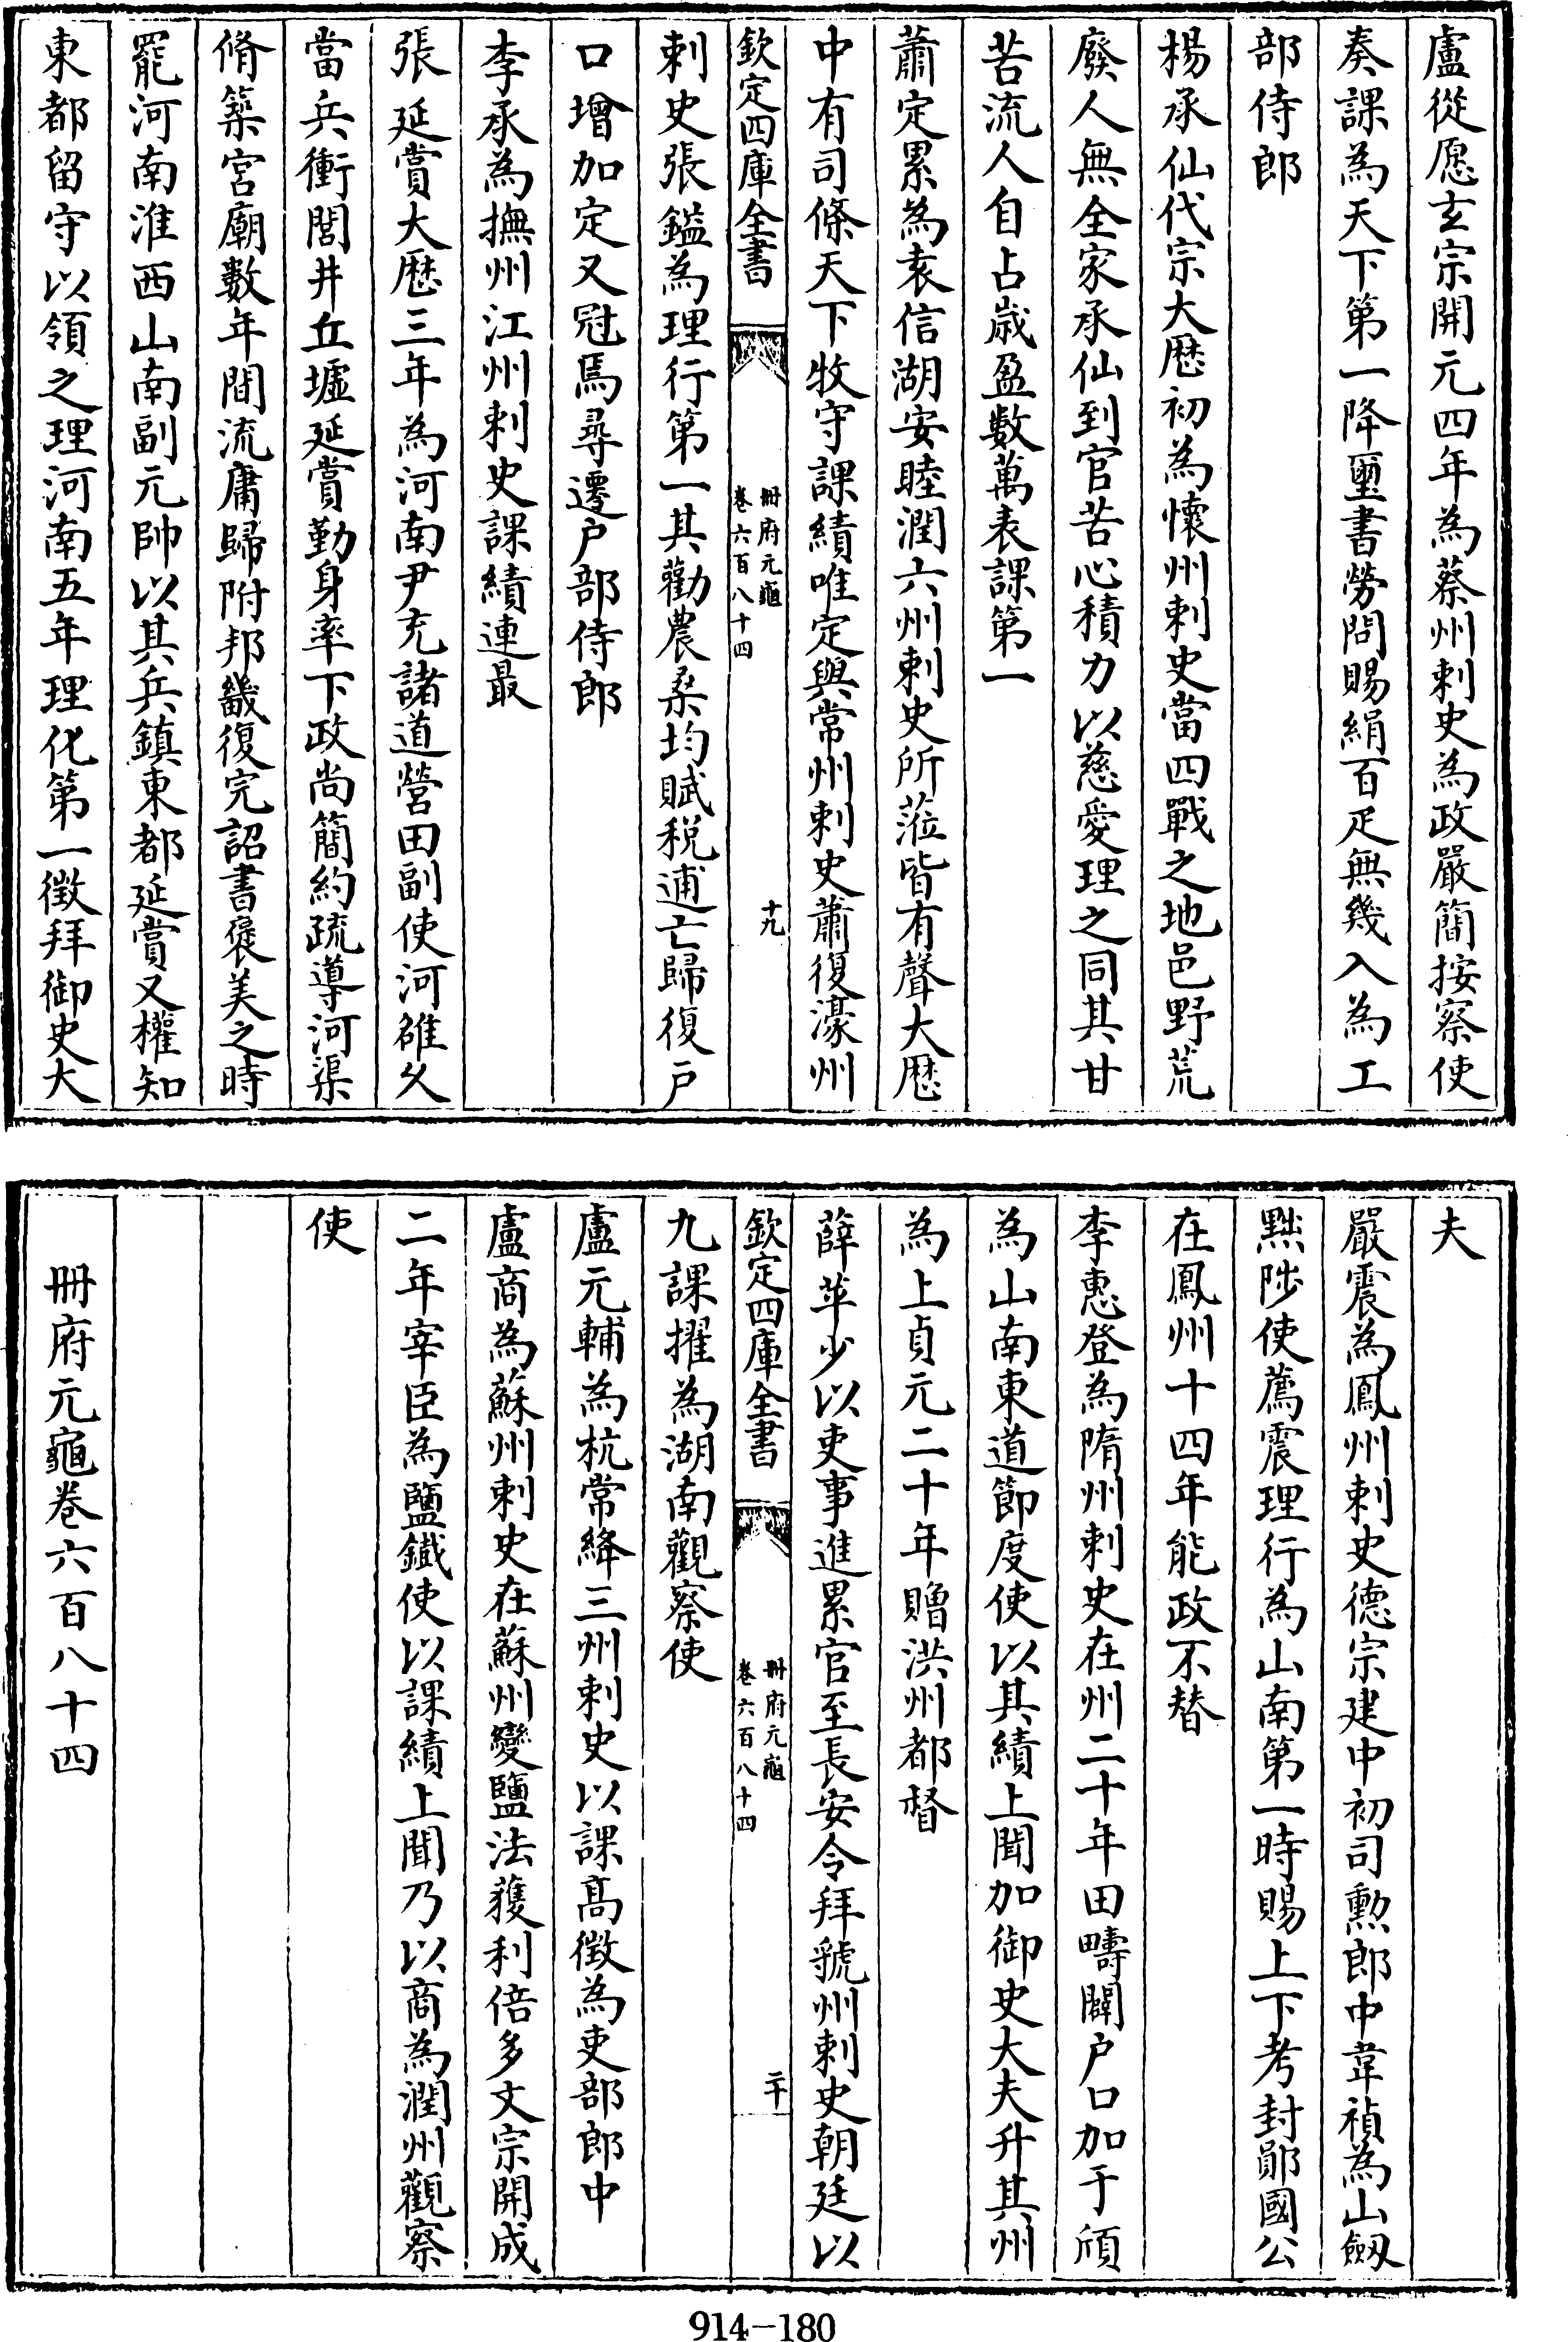 盧從愿玄宗開元四年為蔡州刺史為政嚴簡按察使
奏課為天下第一降璽書勞問賜絹百疋無幾入為工
部侍郎
楊承仙代宗大歴初為懷州刺史當四戰之地邑野荒
廢人無全家承仙到官苦心積力以慈愛理之同其甘
苦流人自占歲盈數萬表課第一
蕭定累為袁信湖安睦潤六州刺史所蒞皆有聲大歴
中有司條天下牧守課績唯定與常州刺史蕭復濠州
欽定四庫全書
冊府元龜
卷六百八十四
十九
刺史張鎰為理行第一其勸農桑均賦稅逋亡歸復戶
口增加定又冠焉尋遷戶部侍郎
李承為撫州江州刺史課績連最
張延賞大歴三年為河南尹充諸道營田副使河雒久
當兵衝閭井丘墟延賞勤身率下政尚簡約疏導河渠
脩築宮廟數年間流庸歸附邦畿復完詔書襃美之時
罷河南淮西山南副元帥以其兵鎮東都延賞又權知
東都留守以領之理河南五年理化第一徵拜御史大
夫
嚴震為鳳州刺史德宗建中初司勲郎中韋禎為山劔
黜陟使薦震理行為山南第一時賜上下考封鄖國公
在鳳州十四年能政不替
李惠登為隋州刺史在州二十年田疇闢戶口加于頎
為山南東道節度使以其績上聞加御史大夫升其州
為上貞元二十年贈洪州都督
薛苹少以吏事進累官至長安令拜虢州刺史朝廷以
欽定四庫全書
冊府元龜
卷六百八十四
二十
九課擢為湖南觀察使
盧元輔為杭常絳三州刺史以課髙徵為吏部郎中
盧商為蘇州刺史在蘇州變鹽法獲利倍多文宗開成
二年宰臣為鹽鐵使以課績上聞乃以商為潤州觀察
使
冊府元龜卷六百八十四
914-180